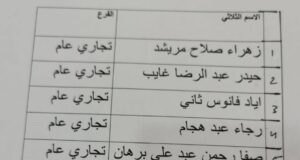 الاسم الثلاثي الفرع
1 زهراء صلاح مريشد تجاري عام
2 حيدر عبد الرضا غايب تجاري عام
3 اياد فانوس ثاني تجاري عام
4 رجاء عبد هجام تجاري عام
صفا رحمن عبد علي برهان تجاري عام